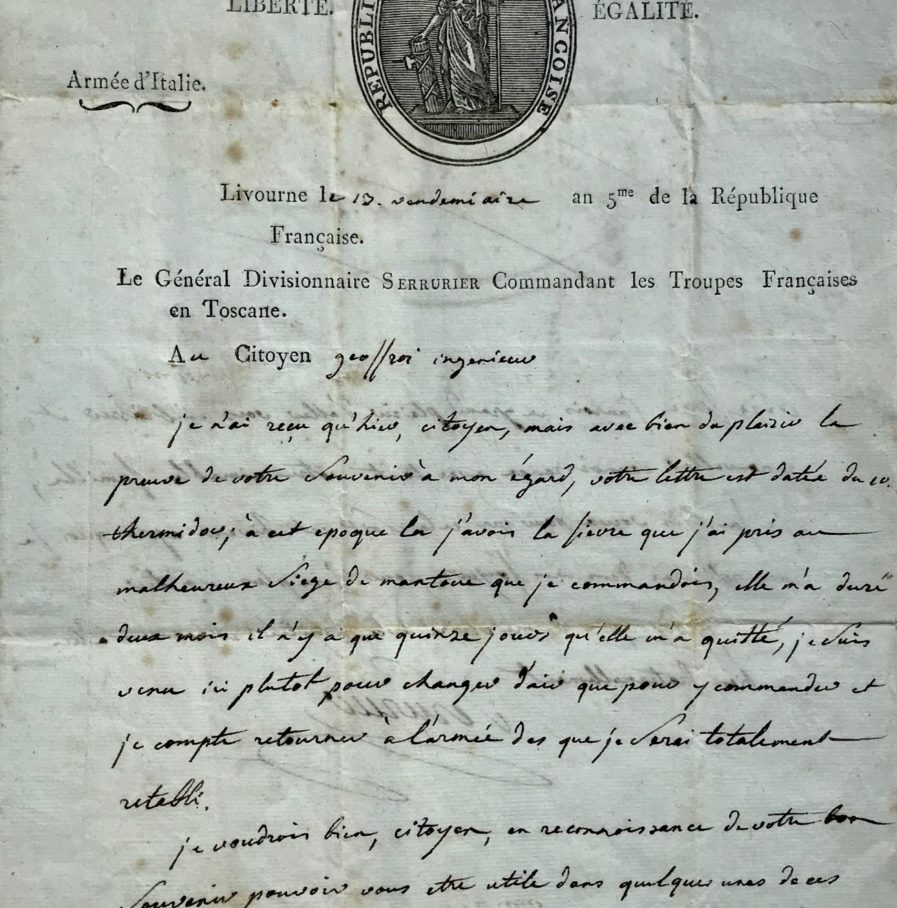 LIBERTÉ. ÉGALITÉ.
RÉPUBLI ANÇOISE
Armée d'Italie.
Livourne le 13. vendemiaire an 5me de la République
Française.
Le Général Divisionnaire SERRURIER Commandant les Troupes Françaises
en Toscane.
Au Citoyen geoffroi ingenieur
je n'ai reçu qu'hier, citoyen, mais avec bien du plaisir la
preuve de votre Souvenir à mon égard, votre lettre est datée du 10.
thermidor; à cet epoque la j'avois la fievre que j'ai pris au
malheureux Siège de mantoue que je commandois, elle m'a duré
deux mois il n'y a que quinze jours qu'elle m'a quitté, je Suis
venu ici plutot pour changer d'air que pour y commander et
je compte retourner à l'armée des que je Serai totalement
retabli.
je voudrois bien, citoyen, en reconnoissance de votre bon
Souvenir pouvoir vous etre utile dans quelques unes de ces